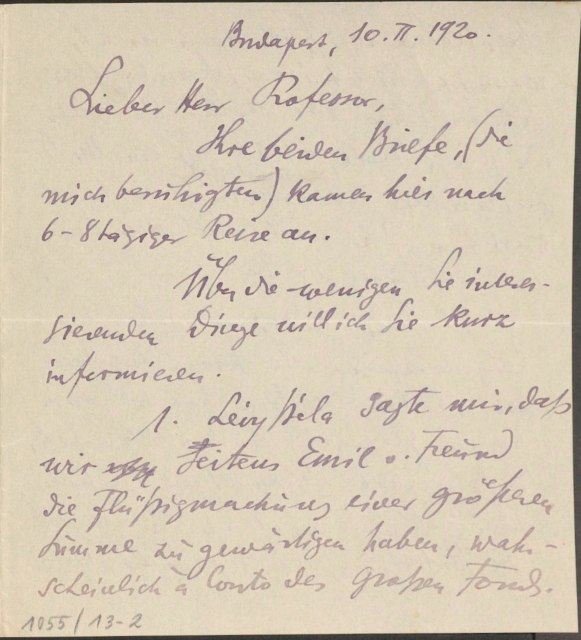 Budapest, 10.II.1920.
Lieber Herr Professor,
Ihre beiden Briefe, (die
mich beruhigten) kamen hier nach
6-8tägiger Reise an.
Über die wenigen Sie interes-
sierenden Dinge will ich Sie kurz
informieren.
1. Lévy Béla sagte mir, daß
wir seitens Emil v. Freund
die Flüßigmachung einer größeren
Summe zu gewärtigen haben, wahr-
scheinlich à Conto des großen Fonds.
1055/13-2